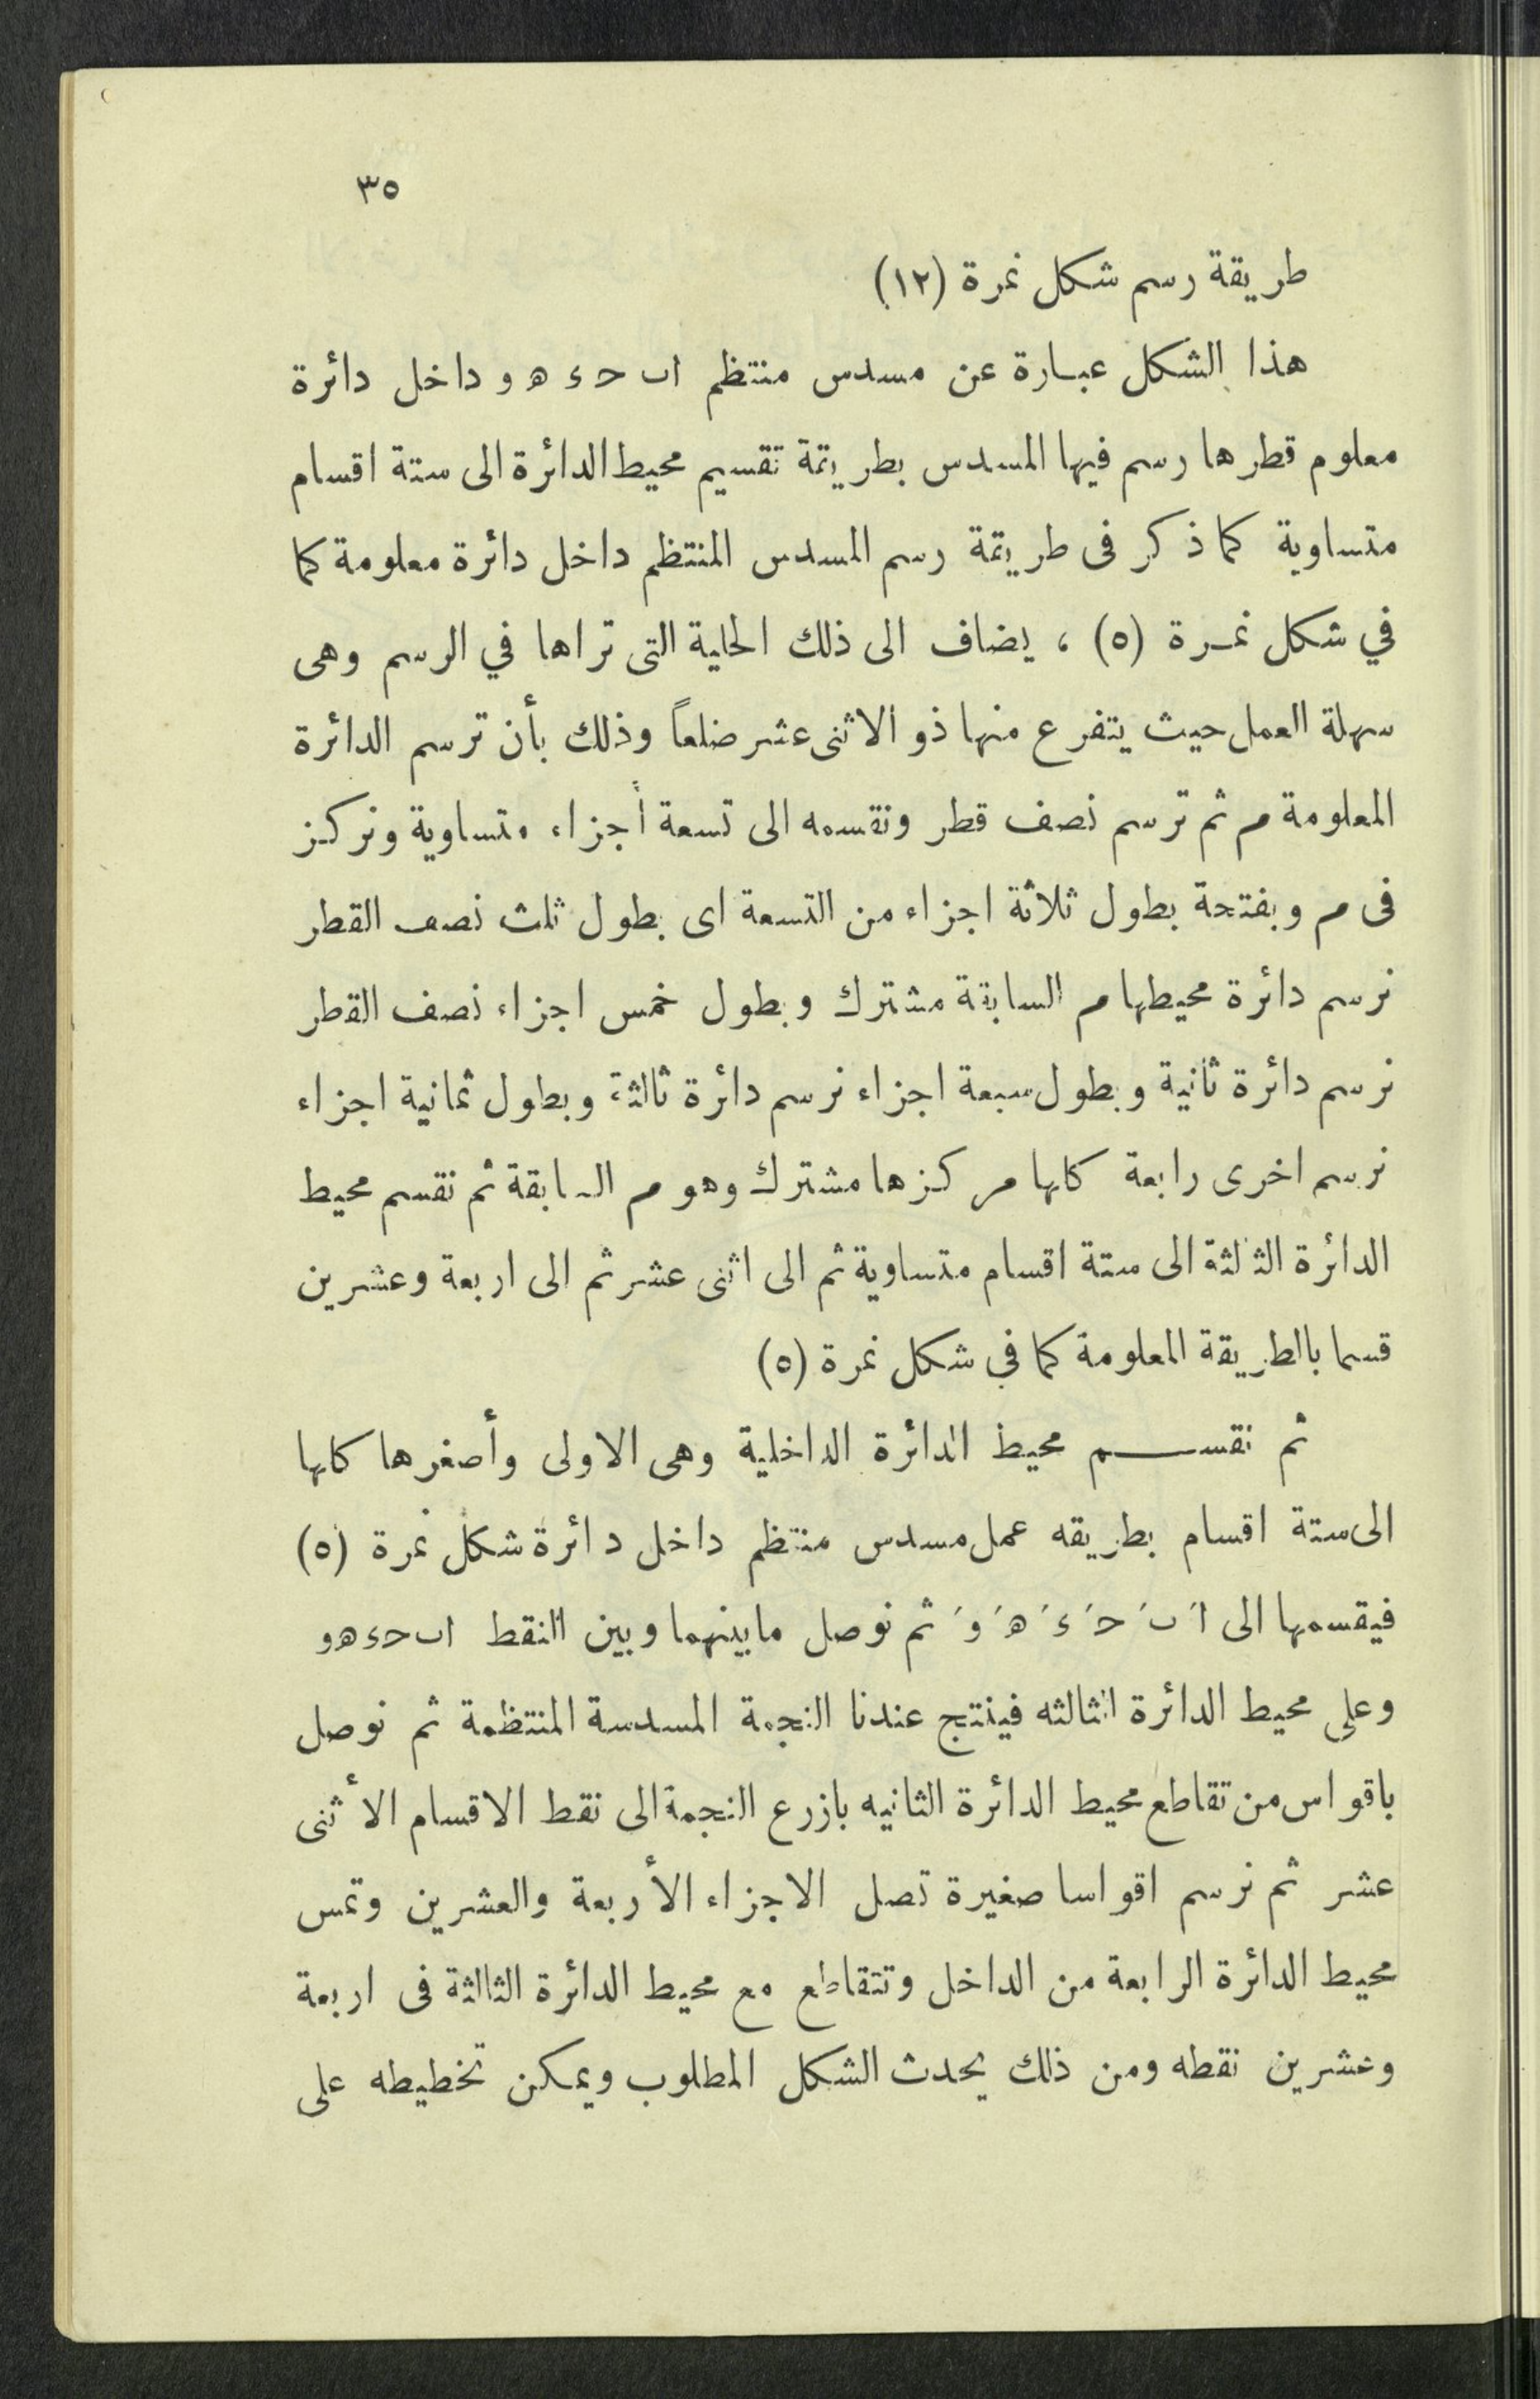 ٣٥
طريقة رسم شكل نمرة (١٢)
هذا الشكل عبارة عن مسدس منتظم ا ب ح ء ه و داخل دائرة
معلوم قطرها رسم فيها المسدس بطريقة تقسيم محيط الدائرة الى ستة اقسام
متساوية كما ذكر فى طريقة رسم المسدس المنتظم داخل دائرة معلومة كما
في شكل نمرة (٥) ، يضاف الى ذلك الحلية التى تراها في الرسم وهى
سهلة العمل حيث يتفرع منها ذو الاثنى عشر ضلعاً وذلك بأن ترسم الدائرة
المعلومة م ثم ترسم نصف قطر ونقسمه الى تسعة أجزاء متساوية ونركز
فى م وبفتحة بطول ثلاثة اجزاء من التسعة اى بطول ثلث نصف القطر
نرسم دائرة محيطها م السابقة مشترك وبطول خمس اجزاء نصف القطر
نرسم دائرة ثانية وبطول سبعة اجزاء نرسم دائرة ثالثة وبطول ثمانية اجزاء
نرسم اخرى رابعة كلها مركزها مشترك وهو م السابقة ثم نقسم محيط
الدائرة الثالثة الى ستة اقسام متساوية ثم الى اثنى عشر ثم الى اربعة وعشرين
قسما بالطريقة المعلومة كما في شكل نمرة (٥)
ثم نقسم محيط الدائرة الداخلية وهى الاولى وأصغرها كلها
الى ستة اقسام بطريقه عمل مسدس منتظم داخل دائرة شكل نمرة (٥)
فيقسمها الى اَ بَ حَ ءَ هَ وَ ثم نوصل مابينهما وبين النقط ا ب ح ء ه و
وعلى محيط الدائرة الثالثه فينتج عندنا النجمة المسدسة المنتظمة ثم نوصل
باقواس من تقاطع محيط الدائرة الثانيه بازرع النجمة الى نقط الاقسام الأثنى
عشر ثم نرسم اقواسا صغيرة تصل الاجزاء الأربعة والعشرين وتمس
محيط الدائرة الرابعة من الداخل وتتقاطع مع محيط الدائرة الثالثة فى اربعة
وعشرين نقطه ومن ذلك يحدث الشكل المطلوب ويمكن تخطيطه على